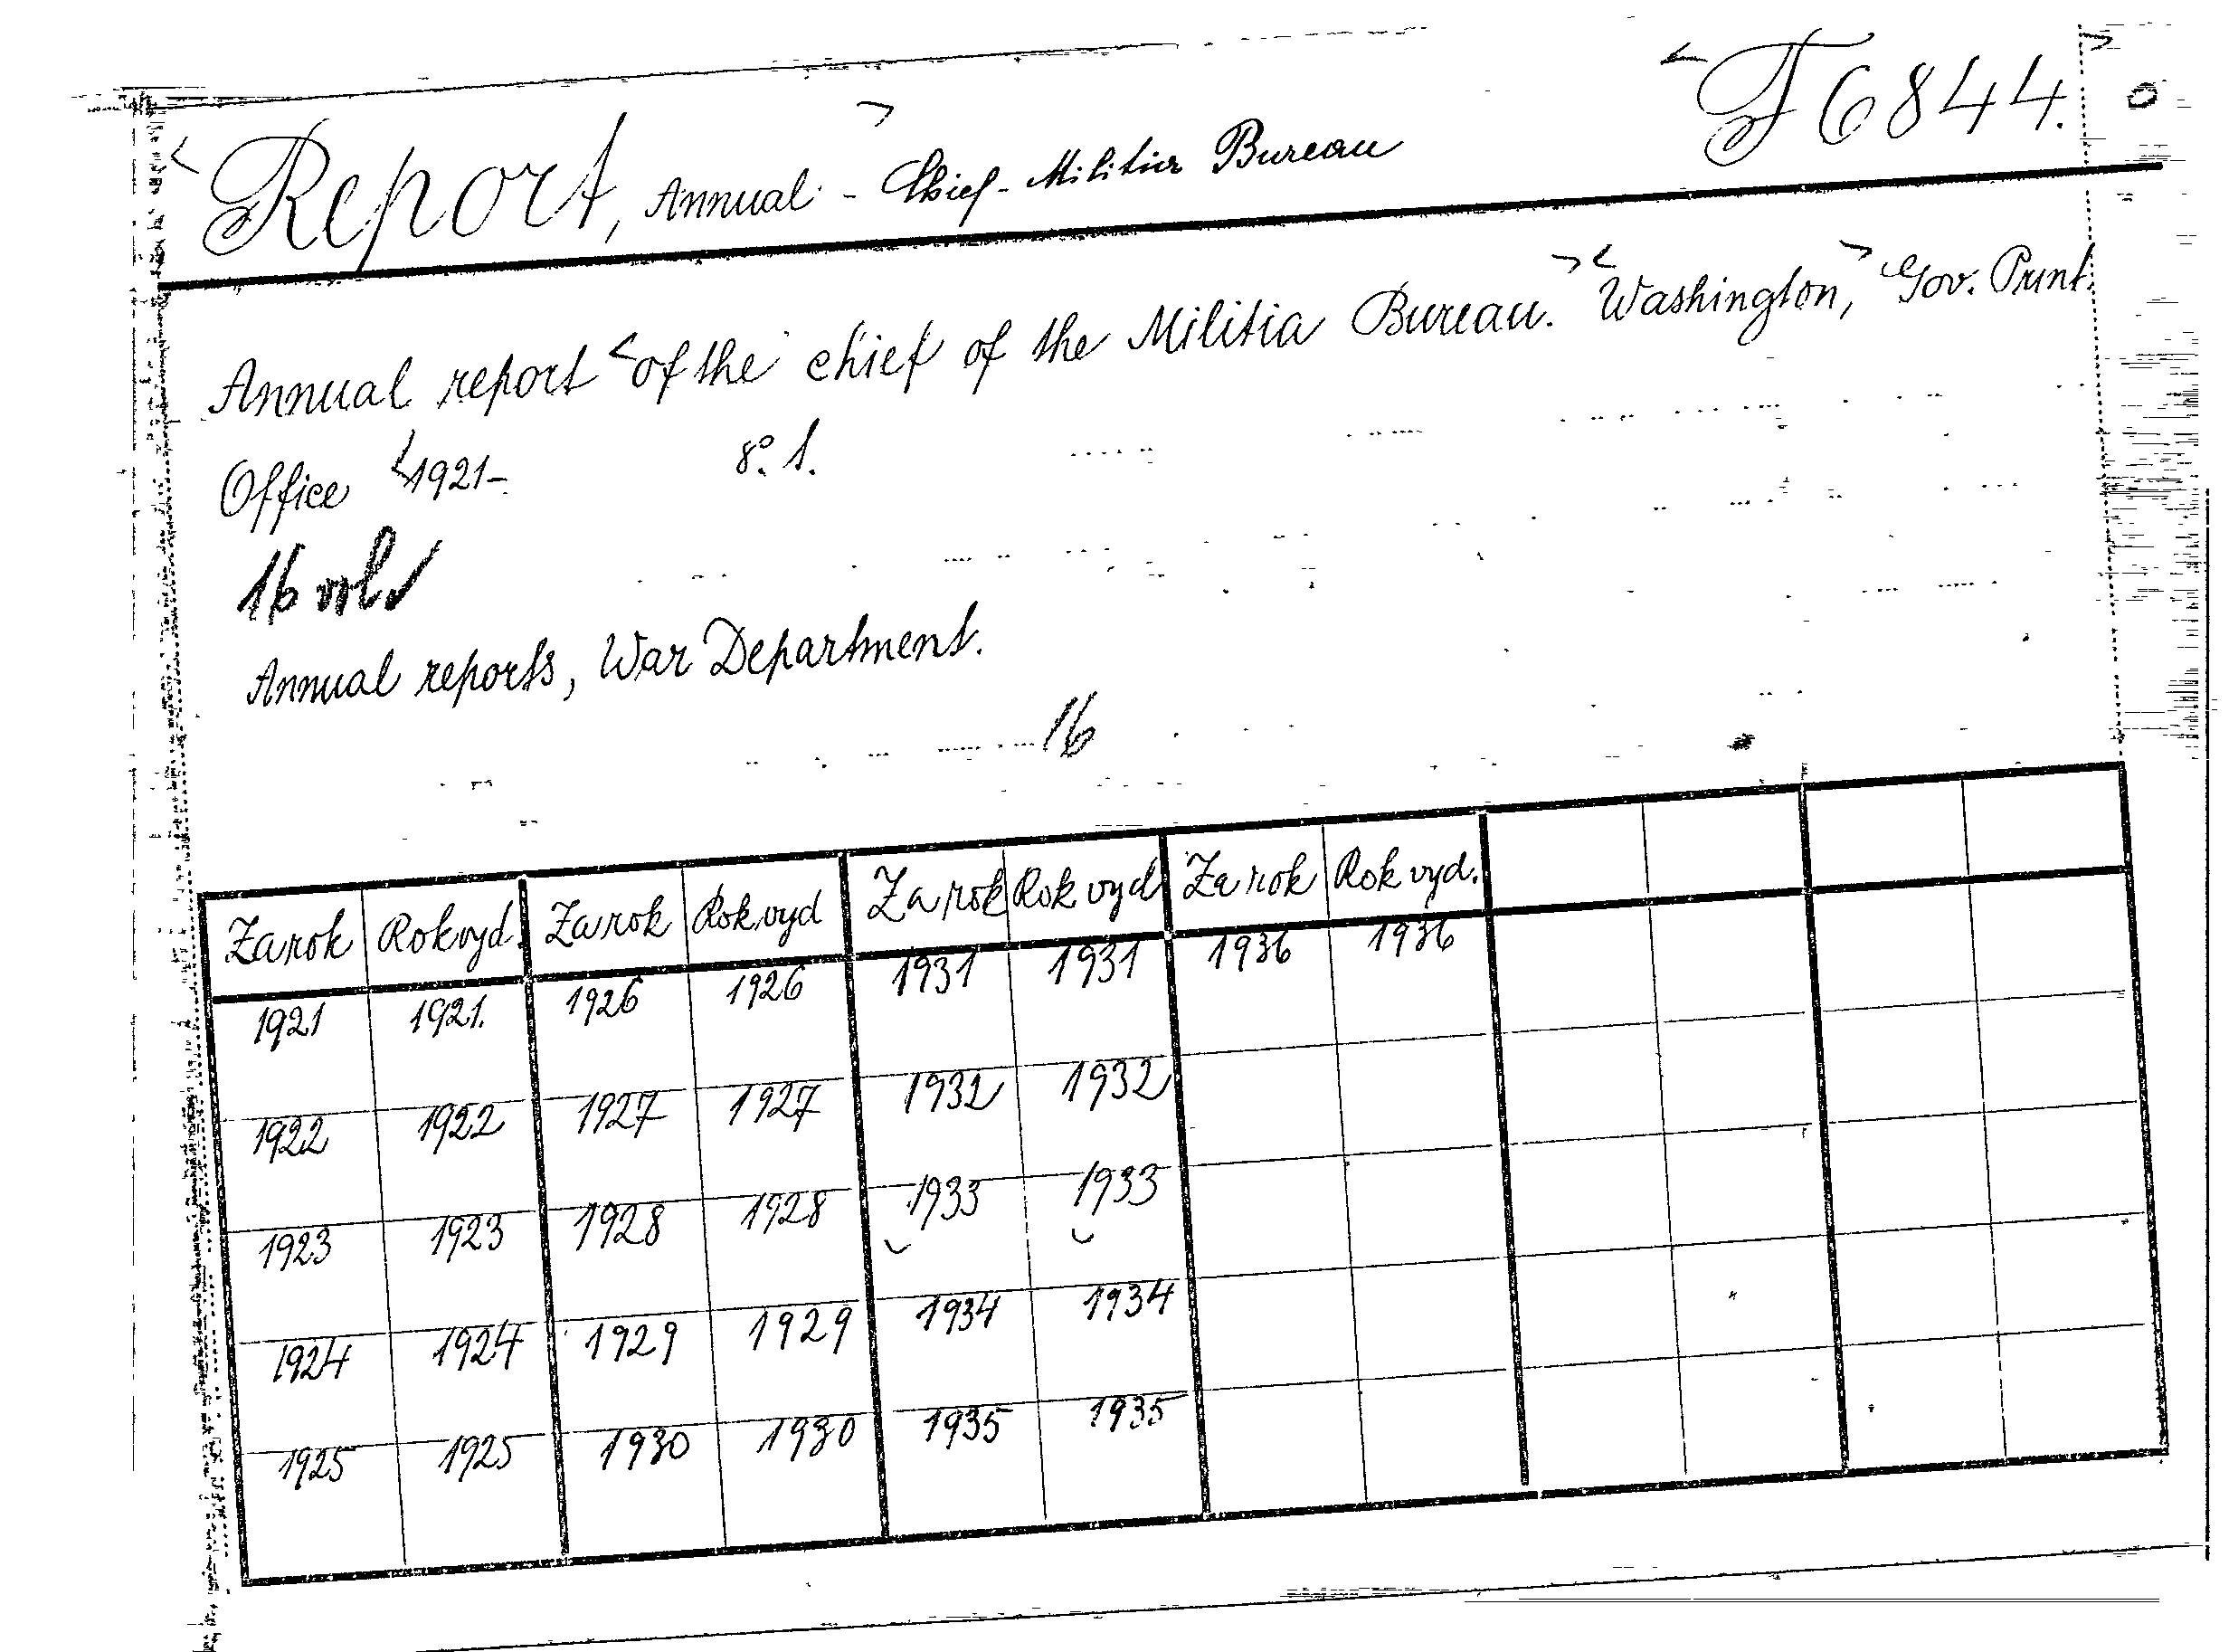 Report, Annual - Chief - Militia Bureau
F 6844.
Annual report of the chief of the Militia Bureau. Washington, Gov. Print.
Office 1921-
8°. 1.
16 vol.
Annual reports, War Department.
16
Za rok Rok vyd. Za rok Rok vyd Za rok Rok vyd Za rok Rok vyd.
1921 1921. 1926 1926 1931 1931 1936 1936
1922 1922 1927 1927 1932 1932
1923 1923 1928 1928 1933 1933
1924 1924 1929 1929 1934 1934
1925 1925 1930 1930 1935 1935